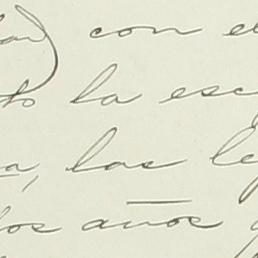 con el
to la esc
a, las le
los años